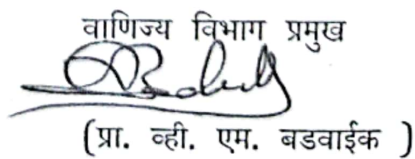 वाणिज्य विभाग प्रमुख
(प्रा. व्ही. एम. बडवाईक )